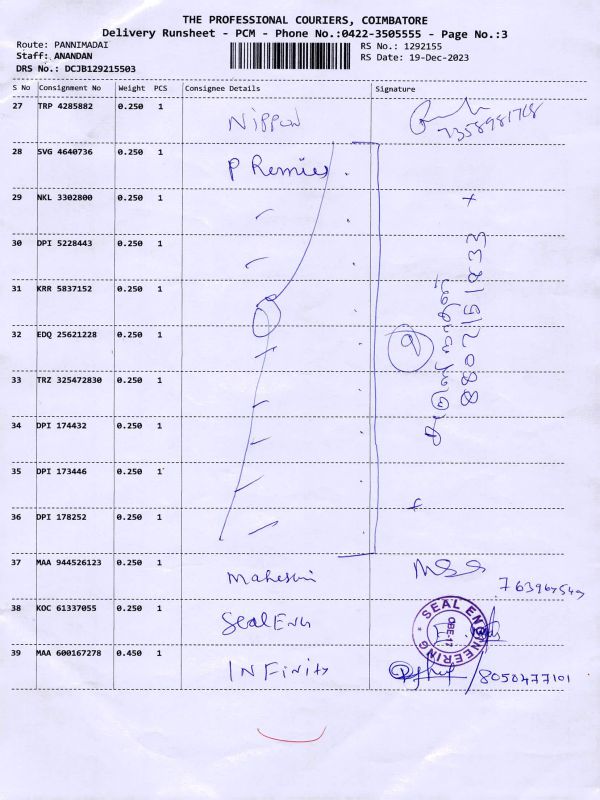 THE PROFESSIONAL COURIERS, COIMBATORE
Delivery Runsheet - PCM - Phone No.:0422-3505555 - Page No.:3
Route: PANNIMADAI RS No.: 1292155
Staff: ANANDAN RS Date: 19-Dec-2023
DRS No.: DCJB129215503
S No Consignment No Weight PCS Consignee Details Signature
27 TRP 4285882 0.250 1 Nippon
28 SVG 4640736 0.250 1 P Remies
29 NKL 3302800 0.250 1
30 DPI 5228443 0.250 1
31 KRR 5837152 0.250 1
32 EDQ 25621228 0.250 1 9
33 TRZ 325472830 0.250 1
34 DPI 174432 0.250 1
35 DPI 173446 0.250 1
36 DPI 178252 0.250 1
37 MAA 944526123 0.250 1
38 KOC 61337055 0.250 1 Seal Eng SEAL ENGINEERING CBE-17
39 MAA 600167278 0.450 1 INFinity 8050477101